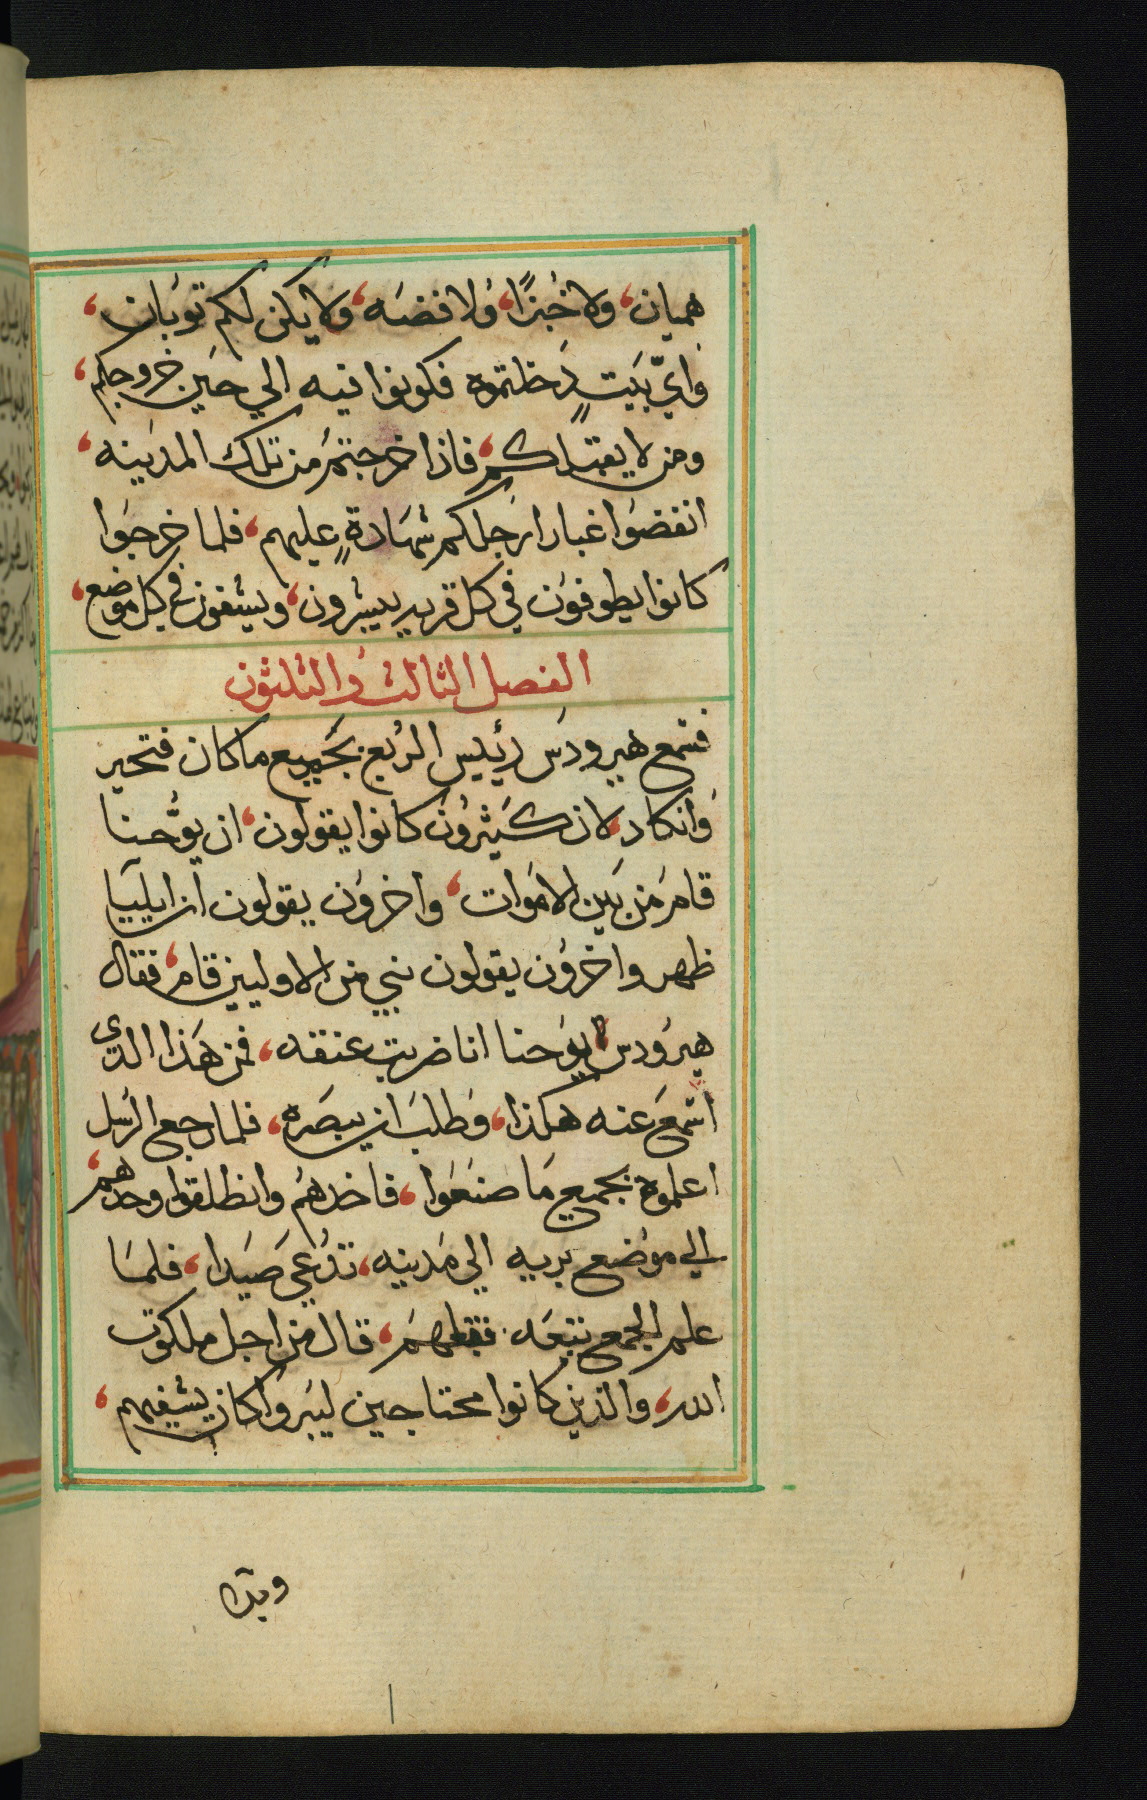 هميان، ولا خُبزًا، وُلا فضَه، ولا يكن لكم ثوبان،
وَايّ بَيتٍ دَخلتموه فكونوا فيه الي حَين خروجكم،
ومن لا يقبلكم، فاذا خرجتمُ من تلك المدَينه،
انفضوَا غبار ارَجلكم شهَادةٍ عليهم، فلما خرجوَا
كانوا يطوفوُن في كل قريه يبشرون، ويشفون في كل موضع،
الفصل الثالث والثلثون
فسَمع هيرودسَ رئيس الربُع بجَميع ما كان فتحير
وَانكاد، لان كثَيروُن كانوا يقولون، ان يوُحنا
قامَ من بَين الامَوات، واخروَن يقولون ان ايلييا
ظهر واخروُن يقولون نبي من الاوليين قام، فقال
هيروُدس يوُحنا انا ضربت عنقه، فمن هَذا الذي
اسَمعَ عنه هكذا، وَطلبَ ان يبصَره، فلما رجع الرسُل
اعلموه بجميع مَا صنعَوا، فاخدهمُ وانطلقوا وحدهم،
الي موضَع بريه الي مَدينه، تدُعي صَيدا، فلمَا
علم الجمع تبعَه فقبلهمَ، قال من اجل ملكوت
الله، والذين كانوا محتاجين ليبروا كان يشفيهم،
وبدا